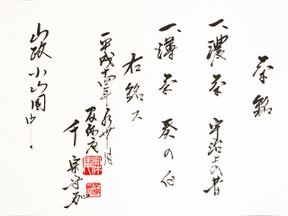 茶銘
一、濃茶 宇治上の昔
一、薄茶 葵の白
右銘ス
平成十四年
千宗守
山政小山園